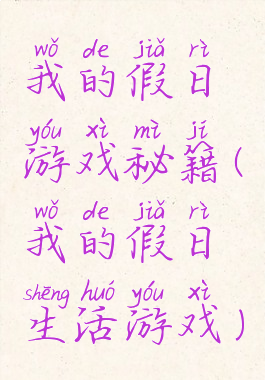 wǒ de jiǎ rì
我的假日
yóu xì mì jí
游戏秘籍(
wǒ de jiǎ rì
我的假日
shēng huó yóu xì
生活游戏)